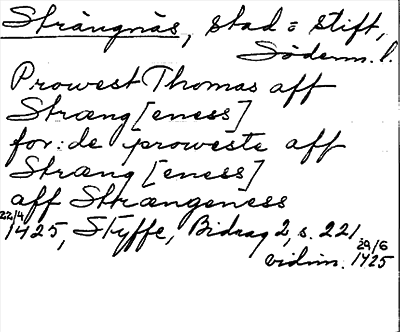 Strängnäs, stad = stift,
Söderm. l.
Prowest Thomas aff
Stræng [eness]
for: de proweste aff
Stræng [eness]
aff Strængeness
22/4 1425, Styffe, Bidrag 2, s. 221
vidim. 29/6 1425